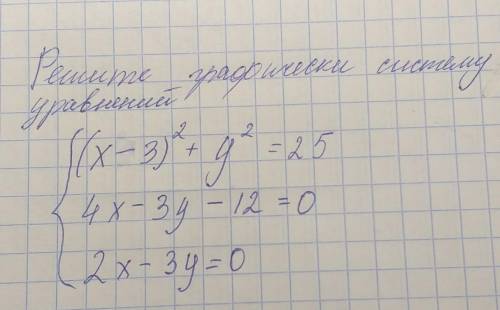 Решите графически систему
уравнений
(x - 3)² + y² = 25
4x - 3y - 12 = 0
2x - 3y = 0